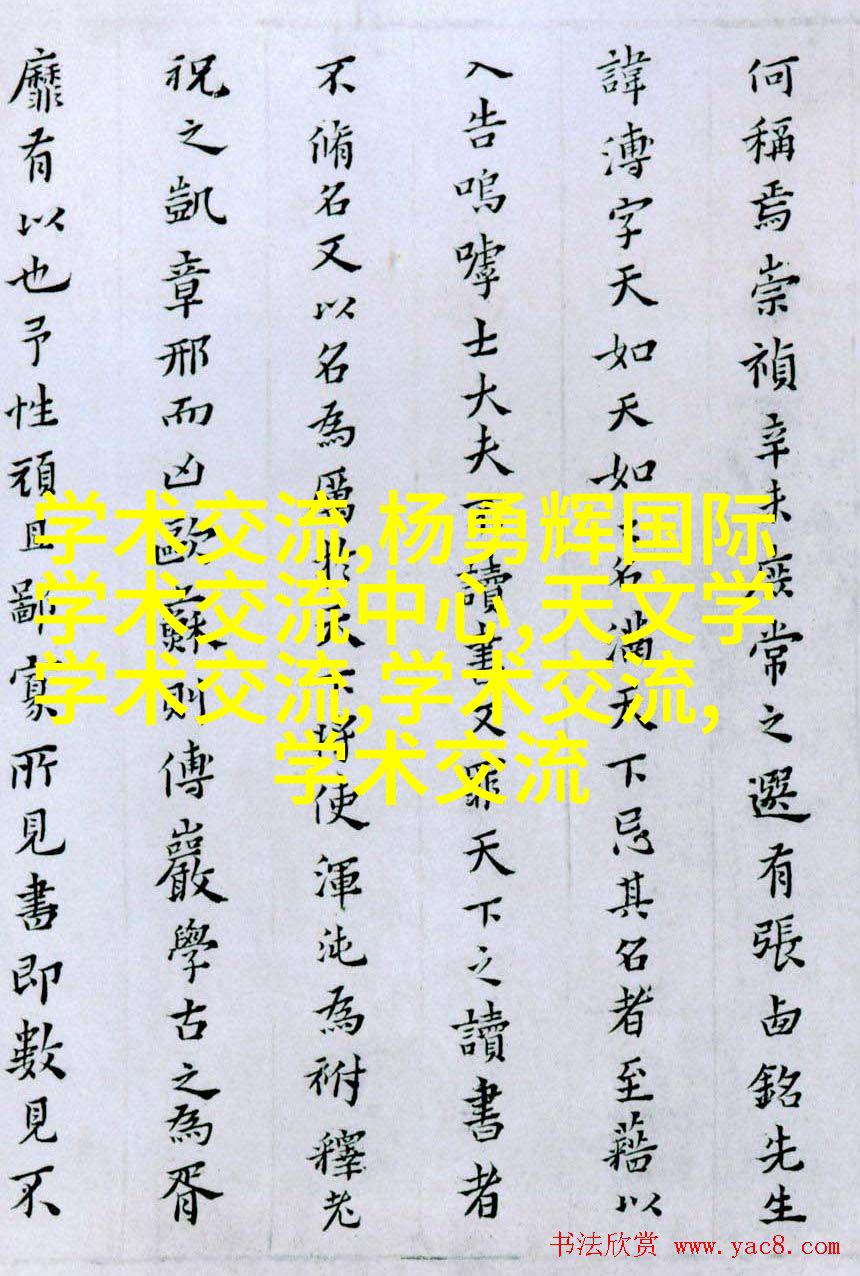 何稱焉崇禎辛未庶常之選有張卥銘先生
諱溥字天如天如名滿天下忌其名者至藉以
入告嗚嘑士大夫讀書又罪天下之讀書者
不脩名又以名為厲於天將使渾沌為祔釋老
祝之凱章邢而凶歐蘇則傅巖學古之為胥
靡有以也予性頑且鄙寡所見書即數見不
学术交流,杨勇辉国际
学术交流中心,天文学
学术交流,学术交流,
学术交流
书法欣赏 www.yac8.com